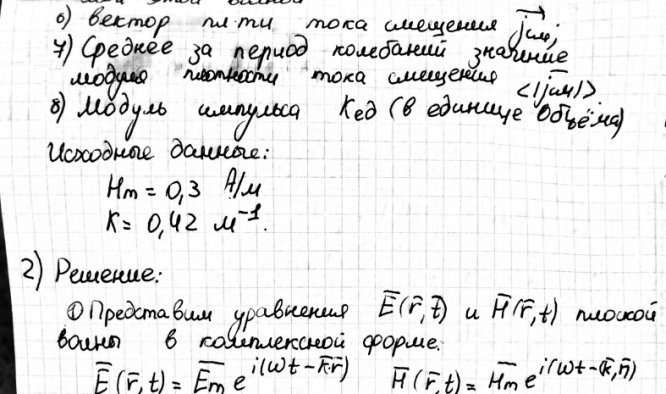 6) вектор пл-ти тока смещения j⃗см;
7) Среднее за период колебаний значение
модуля плотности тока смещения <|j̅см|>
8) Модуль импульса Кед (в единице объёма)
Исходные данные:
Hm = 0,3 А/м
K = 0,42 м⁻¹.
2) Решение:
① Представим уравнения E̅(r̅,t) и H̅(r̅,t) плоской
волны в комплексной форме:
E̅(r̅,t) = E̅m e^{i(ωt − k̅r̅)} H̅(r̅,t) = H̅m e^{i(ωt−(k̅,r̅))}